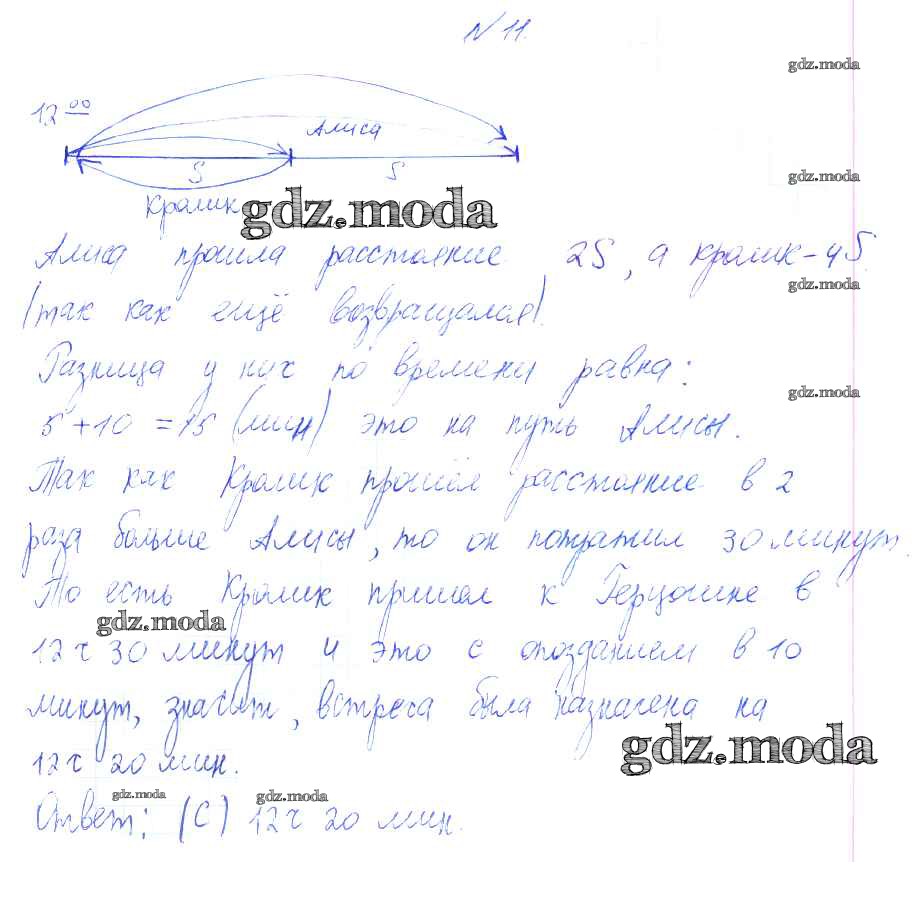 № 11.
gdz.moda
12 00
Алиса
S
S
gdz.moda
Кролик
gdz.moda
Алиса прошла расстояние 2S, а кролик – 4S
gdz.moda
(так как ещё возвращался).
Разница у них по времени равна:
gdz.moda
5 + 10 = 15 (мин) это на путь Алисы.
Так как Кролик прошёл расстояние в 2
раза больше Алисы, то он потратил 30 минут.
То есть Кролик пришел к Герцогине в
gdz.moda
12 ч 30 минут и это с опозданием в 10
минут, значит, встреча была назначена на
gdz.moda
12 ч 20 мин.
gdz.moda
gdz.moda
Ответ: (С) 12 ч 20 мин.